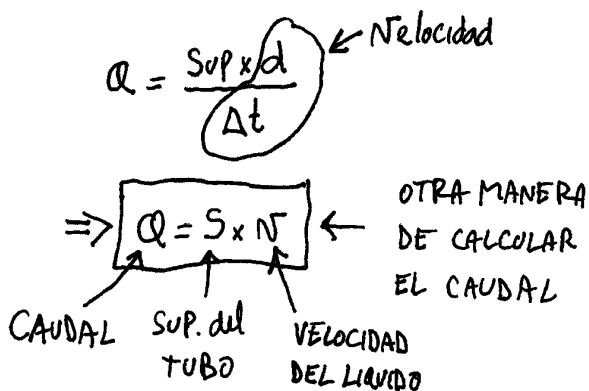 Q = Sup x d / Δt ← Velocidad
⇒ Q = S x V ← OTRA MANERA
DE CALCULAR
EL CAUDAL
CAUDAL
SUP. del
TUBO
VELOCIDAD
DEL LIQUIDO